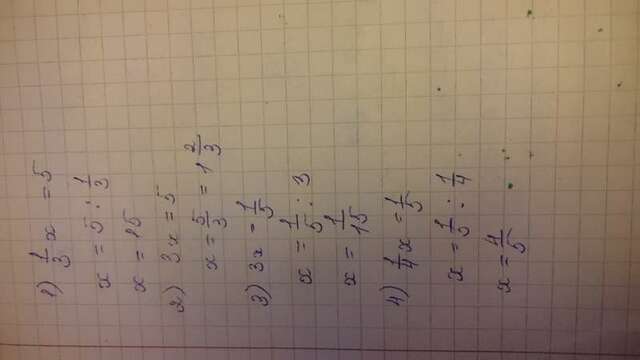 1) 1/3 x = 5
x = 5 : 1/3
x = 15
2) 3x = 5
x = 5/3 = 1 2/3
3) 3x = 1/5
x = 1/5 : 3
x = 1/15
4) 1/4 x = 1/5
x = 1/5 : 1/4
x = 4/5